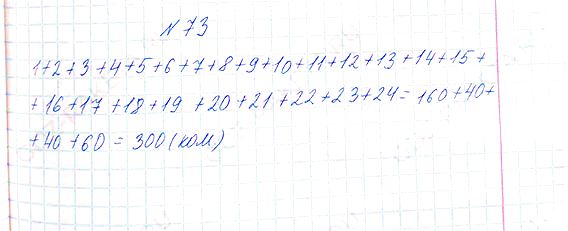 N 73
1+2+3+4+5+6+7+8+9+10+11+12+13+14+15+
+16+17+18+19+20+21+22+23+24=160+40+
+40+60=300(ком)